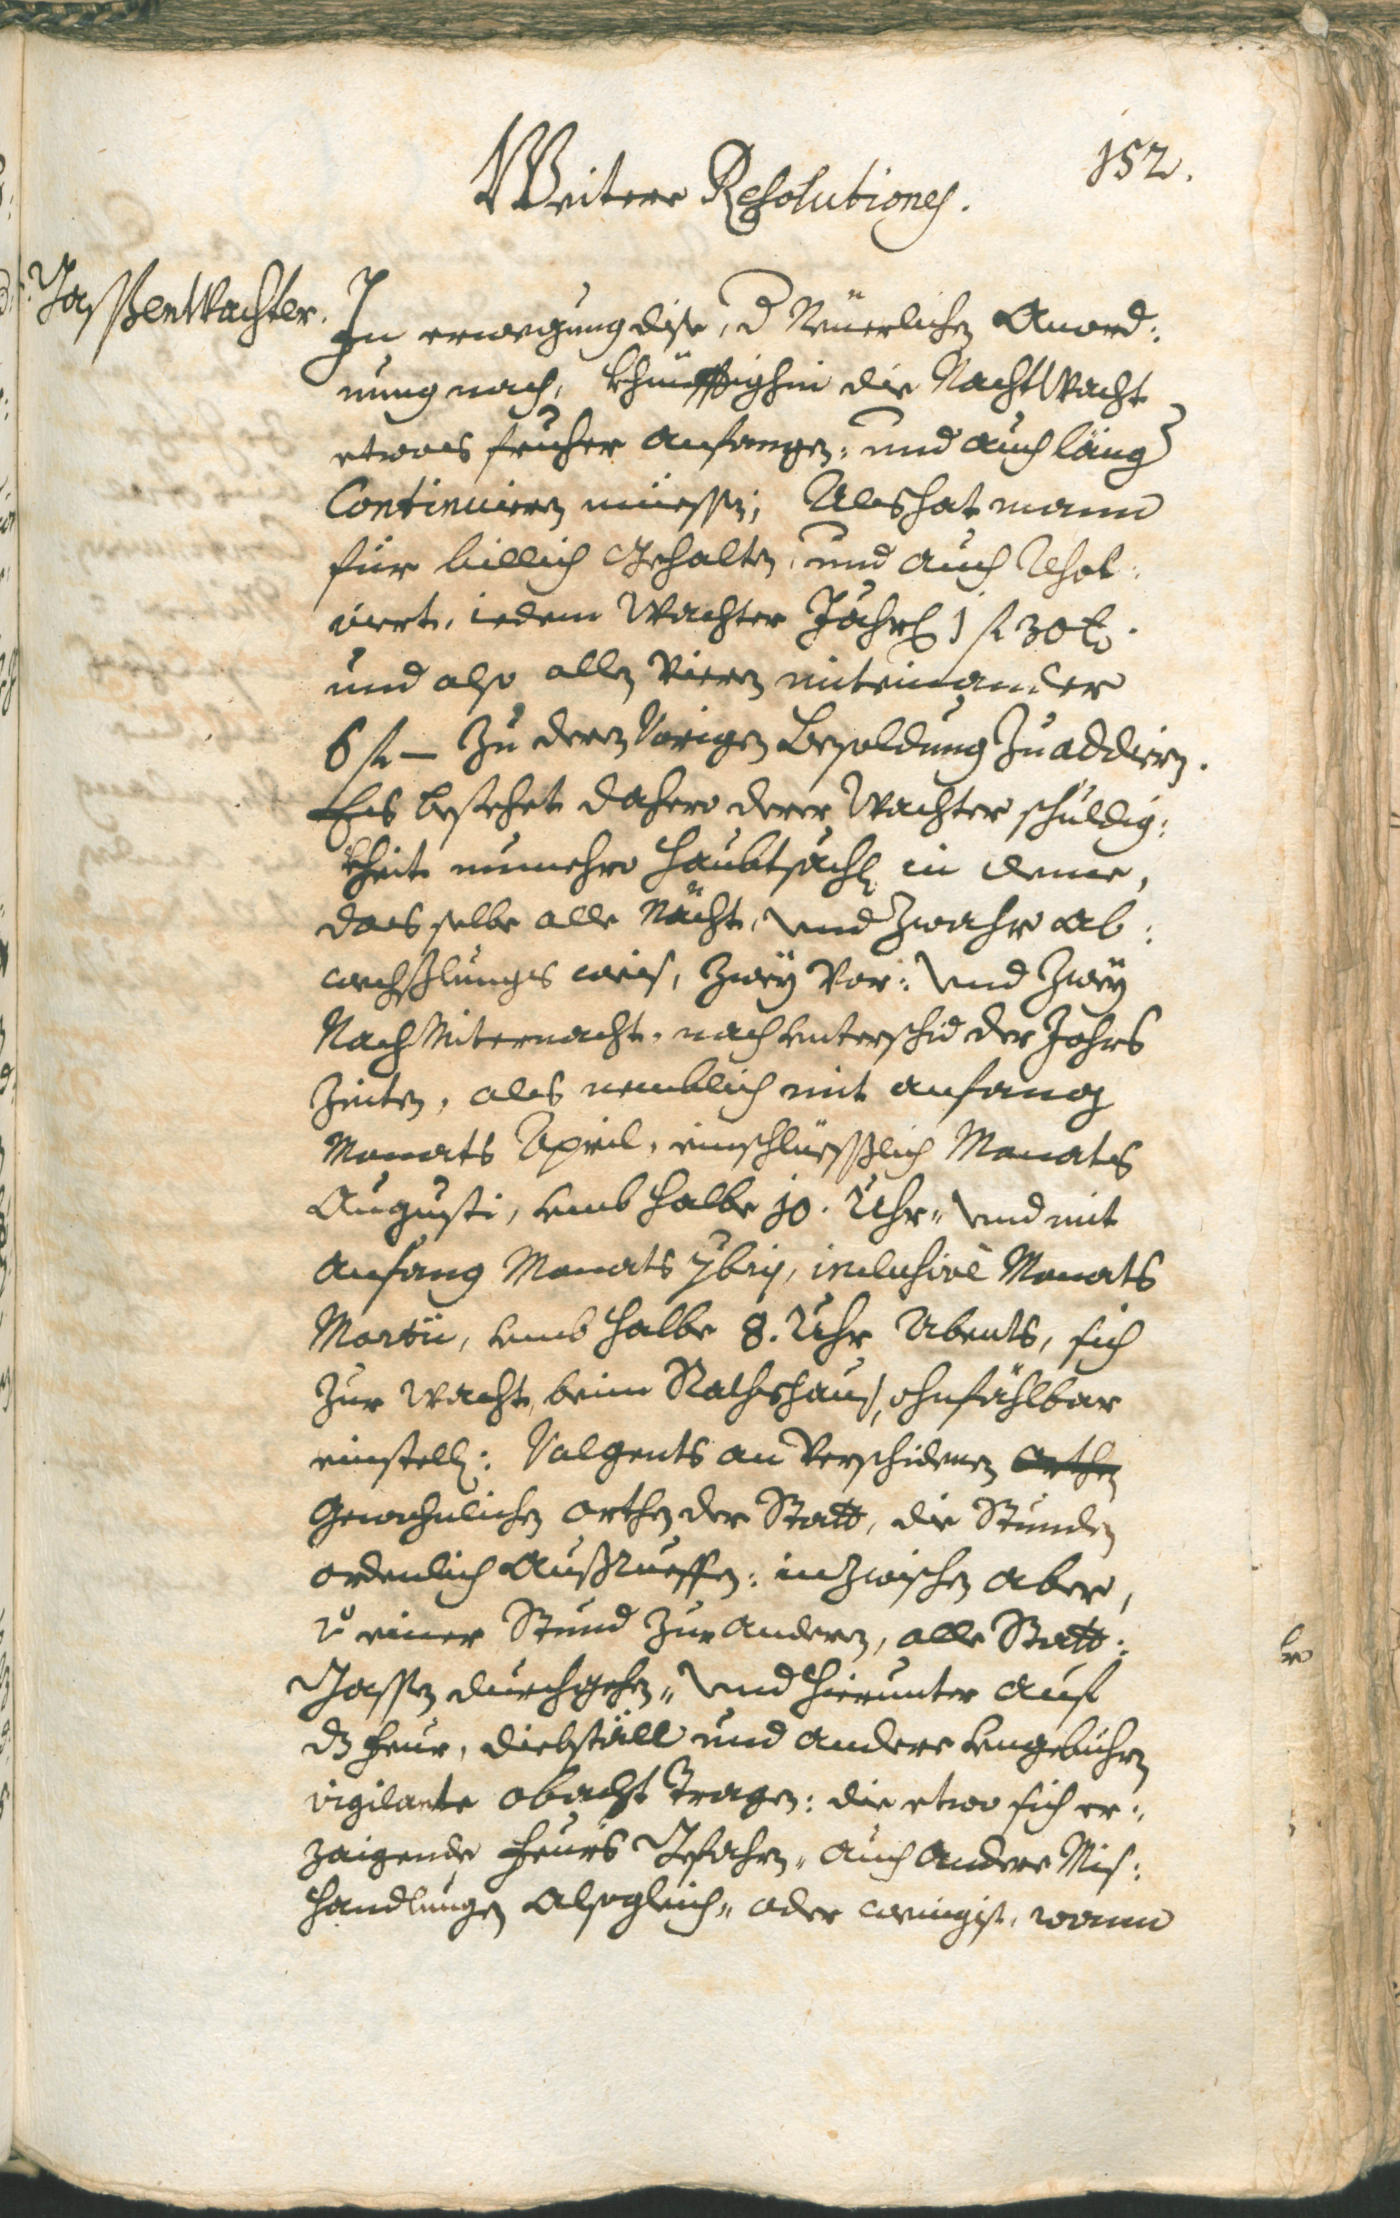 152.
Weitere Resolutiones.
Gassen Wachter.
In erwegung dise, d Neüerlichen Anord:
nung nach, khünfftighin die NachtWacht
etwas fruher anfangen: und auch läng
Continuiern müessen; Als hat mann
für billich gehalten, und auch Resol:
viert, iedem Wachter Jährl 1 fl 30 kr.
und also allen Viern miteinander
6 fl — zu deren Vorigen Besoldung zu addiern.
Es bestehet dahero derer Wachter schuldig:
kheit nunmehro haubtsächl in deme,
das selbe alle Nächt, und zwahr ab:
wechßlungs weis, zwey Vor: und zwey
Nach Miternacht, nach unterschid der Jahrs
Zeiten, als nemblich mit anfang
Monats April, einschlüesslich Monats
Augusti, umb halbe 10. Uhr, und mit
anfang Monats 7bris, inclusivè Monats
Martii, umb halbe 8. Uhr Abents, sich
zur Wacht, beim Rathshaus, ohnfählbar
einstellen: Volgents an Verschidenen Orthen
gewohnlichen orthen der Statt, die Stunden
ordenlich Außrueffen: inzwischen aber,
vo einer Stund zur anderen, alle Statt:
Gassen durchgehen, und hierunter auf
dz feur, diebställ und andere ungebührn
vigilante obacht tragen: die etwo sich er:
zaigende feurs Gefahrn, auch andere Mis:
handlungen alsogleich, oder wenigist, wann